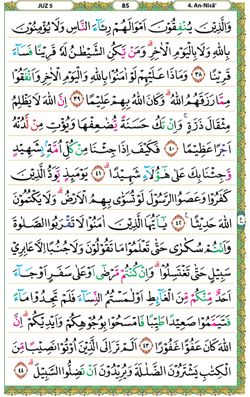 JUZ 5 85 4. An-Nisā'
وَالَّذِيْنَ يُنْفِقُوْنَ اَمْوَالَهُمْ رِئَاۤءَ النَّاسِ وَلَا يُؤْمِنُوْنَ
بِاللّٰهِ وَلَا بِالْيَوْمِ الْاٰخِرِ ۗ وَمَنْ يَّكُنِ الشَّيْطٰنُ لَهٗ قَرِيْنًا فَسَاۤءَ
قَرِيْنًا ٣٨ وَمَاذَا عَلَيْهِمْ لَوْ اٰمَنُوْا بِاللّٰهِ وَالْيَوْمِ الْاٰخِرِ وَاَنْفَقُوْا
مِمَّا رَزَقَهُمُ اللّٰهُ ۗ وَكَانَ اللّٰهُ بِهِمْ عَلِيْمًا ٣٩ اِنَّ اللّٰهَ لَا يَظْلِمُ
مِثْقَالَ ذَرَّةٍ ۚ وَاِنْ تَكُ حَسَنَةً يُّضٰعِفْهَا وَيُؤْتِ مِنْ لَّدُنْهُ
اَجْرًا عَظِيْمًا ٤٠ فَكَيْفَ اِذَا جِئْنَا مِنْ كُلِّ اُمَّةٍۢ بِشَهِيْدٍ
وَّجِئْنَا بِكَ عَلٰى هٰٓؤُلَاۤءِ شَهِيْدًا ۗ ٤١ يَوْمَىِٕذٍ يَّوَدُّ الَّذِيْنَ
كَفَرُوْا وَعَصَوُا الرَّسُوْلَ لَوْ تُسَوّٰى بِهِمُ الْاَرْضُ ۗ وَلَا يَكْتُمُوْنَ
اللّٰهَ حَدِيْثًا ٤٢ يٰٓاَيُّهَا الَّذِيْنَ اٰمَنُوْا لَا تَقْرَبُوا الصَّلٰوةَ
وَاَنْتُمْ سُكٰرٰى حَتّٰى تَعْلَمُوْا مَا تَقُوْلُوْنَ وَلَا جُنُبًا اِلَّا عَابِرِيْ
سَبِيْلٍ حَتّٰى تَغْتَسِلُوْا ۗ وَاِنْ كُنْتُمْ مَّرْضٰٓى اَوْ عَلٰى سَفَرٍ اَوْ جَاۤءَ
اَحَدٌ مِّنْكُمْ مِّنَ الْغَاۤىِٕطِ اَوْ لٰمَسْتُمُ النِّسَاۤءَ فَلَمْ تَجِدُوْا مَاۤءً
فَتَيَمَّمُوْا صَعِيْدًا طَيِّبًا فَامْسَحُوْا بِوُجُوْهِكُمْ وَاَيْدِيْكُمْ ۗ اِنَّ
اللّٰهَ كَانَ عَفُوًّا غَفُوْرًا ٤٣ اَلَمْ تَرَ اِلَى الَّذِيْنَ اُوْتُوْا نَصِيْبًا مِّنَ
الْكِتٰبِ يَشْتَرُوْنَ الضَّلٰلَةَ وَيُرِيْدُوْنَ اَنْ تَضِلُّوا السَّبِيْلَ ۗ ٤٤